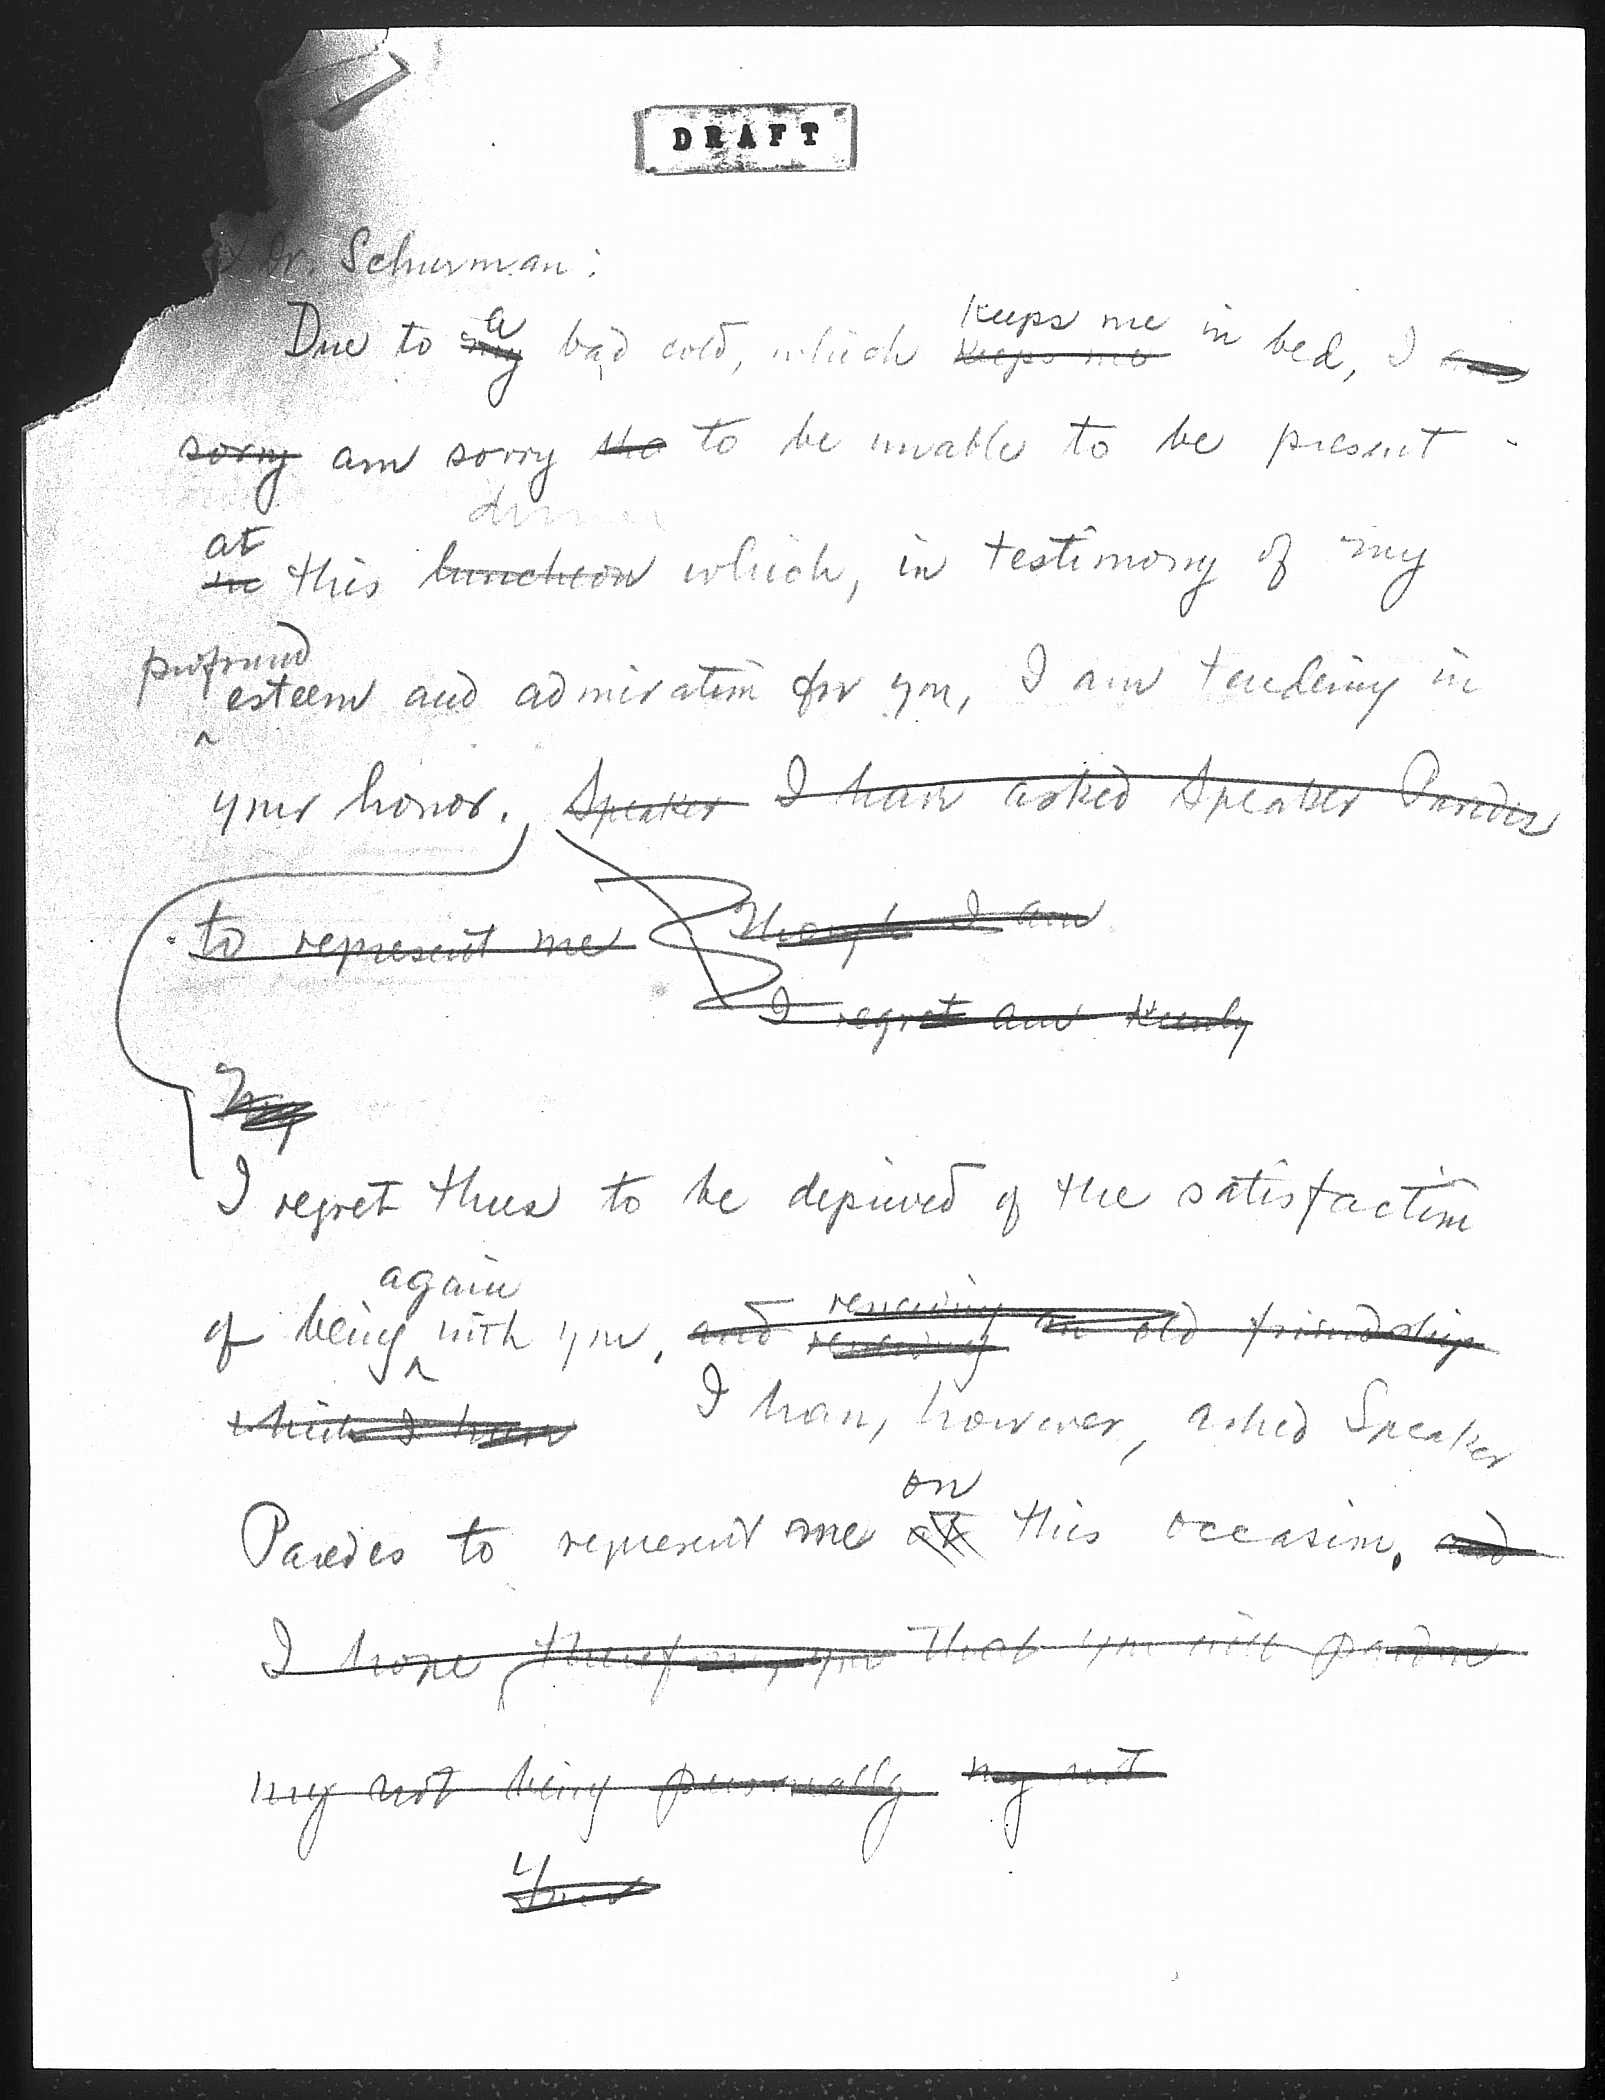 DRAFT
Dr. Schurman:
Due to my a bad cold, which keeps me keeps me in bed, I am
sorry am sorry tha to be unable to be present
dinner
at in this luncheon which, in testimony of my
profound
esteem and admiration for you, I am tendering in
your honor. Speaker I have asked Speaker Paredes
to represent me Though I am
I regret am keenly
My
I regret thus to be deprived of the satisfaction
again renewing
of being with you, and renewing an old friendship
which I have I have, however, asked Speaker
on
Paredes to represent me at this occasion. and
I hope, therefore, you that you will pardon
my not being personally my not
Your